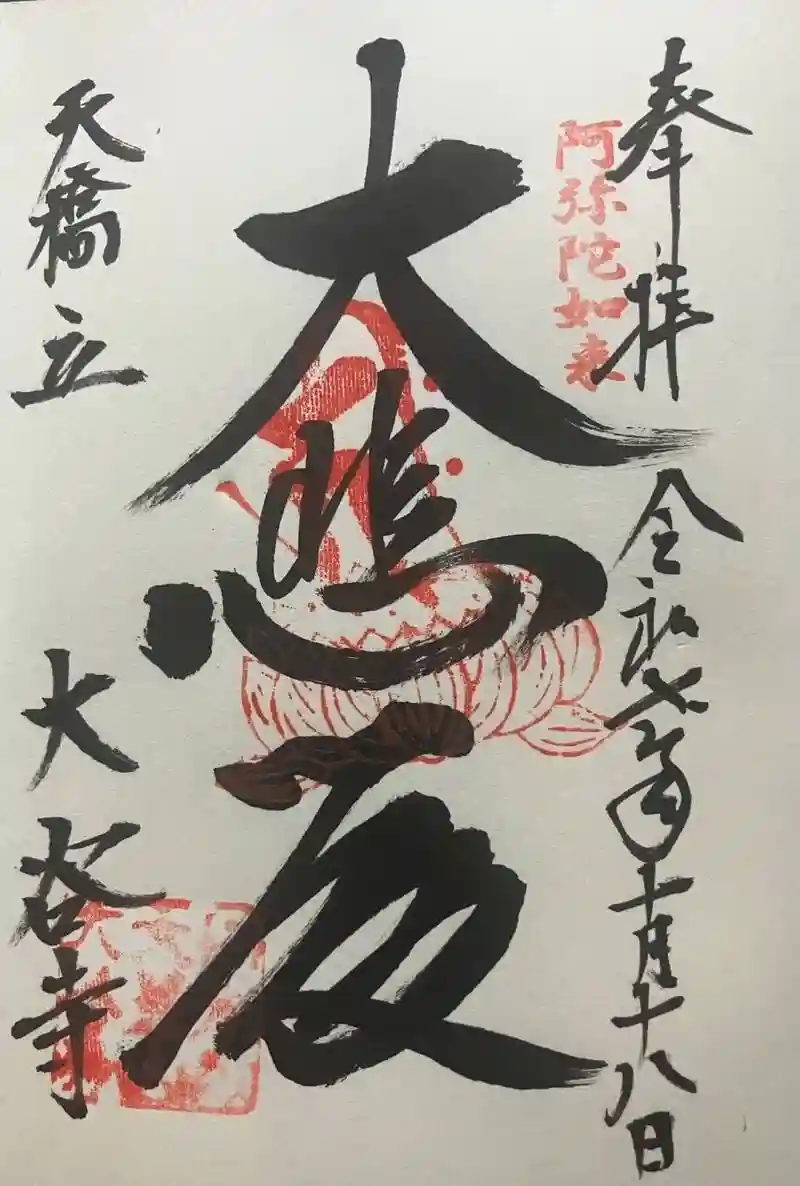 奉拝
阿弥陀如来
令和七年十月十八日
大悲殿
天橋立
大谷寺